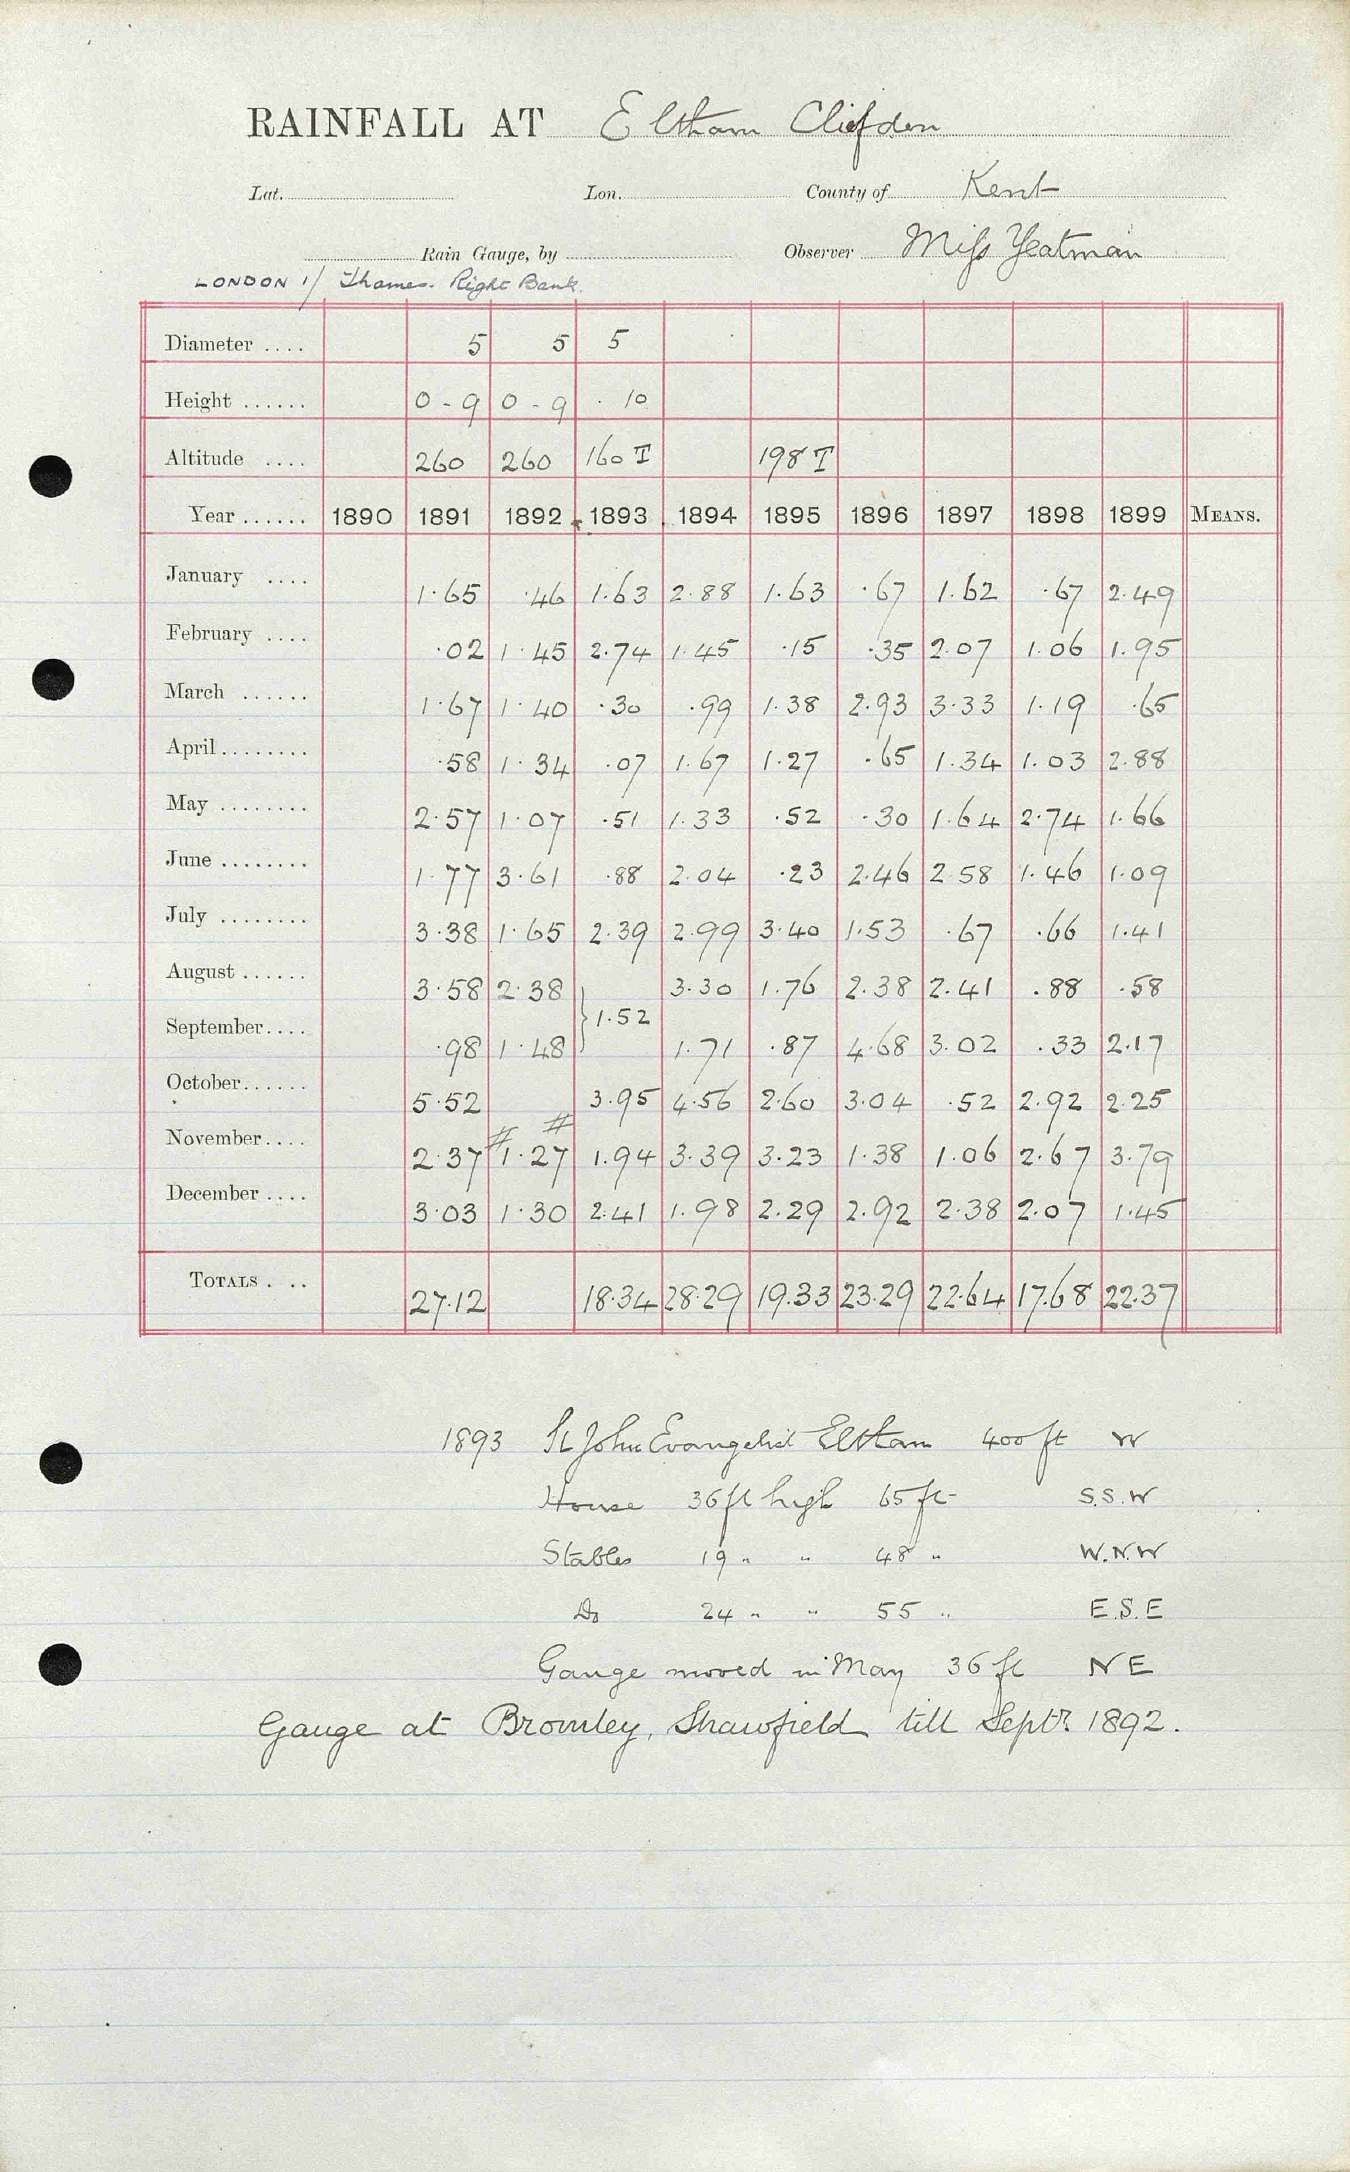 RAINFALL AT Eltham Cliefden
Lat. Lon. County of Kent
Rain Gauge, by Observer Miss Yeatman
LONDON 1/ Thames. Right Bank.
Diameter .... 5 5 5
Height ...... 0-9 0-9 .10
Altitude .... 260 260 160 T 198 T
Year ...... 1890 1891 1892 1893 1894 1895 1896 1897 1898 1899 MEANS.
January .... 1.65 .46 1.63 2.88 1.63 .67 1.62 .67 2.49
February .... .02 1.45 2.74 1.45 .15 .35 2.07 1.06 1.95
March ...... 1.67 1.40 .30 .99 1.38 2.93 3.33 1.19 .65
April ........ .58 1.34 .07 1.67 1.27 .65 1.34 1.03 2.88
May ........ 2.57 1.07 .51 1.33 .52 .30 1.64 2.74 1.66
June ........ 1.77 3.61 .88 2.04 .23 2.46 2.58 1.46 1.09
July ........ 3.38 1.65 2.39 2.99 3.40 1.53 .67 .66 1.41
August ...... 3.58 2.38 3.30 1.76 2.38 2.41 .88 .58
} 1.52
September .... .98 1.48 1.71 .87 4.68 3.02 .33 2.17
October ...... 5.52 3.95 4.56 2.60 3.04 .52 2.92 2.25
# #
November .... 2.37 1.27 1.94 3.39 3.23 1.38 1.06 2.67 3.79
December .... 3.03 1.30 2.41 1.98 2.29 2.92 2.38 2.07 1.45
TOTALS . .. 27.12 18.34 28.29 19.33 23.29 22.64 17.68 22.37
1893 St John Evangelist Eltham 400 ft W
House 36 ft high 65 ft S.S.W
Stables 19 " " 48 " W.N.W
Do 24 " " 55 " E.S.E
Gauge moved in May 36 ft NE
Gauge at Bromley, Shawfield till Septr. 1892.